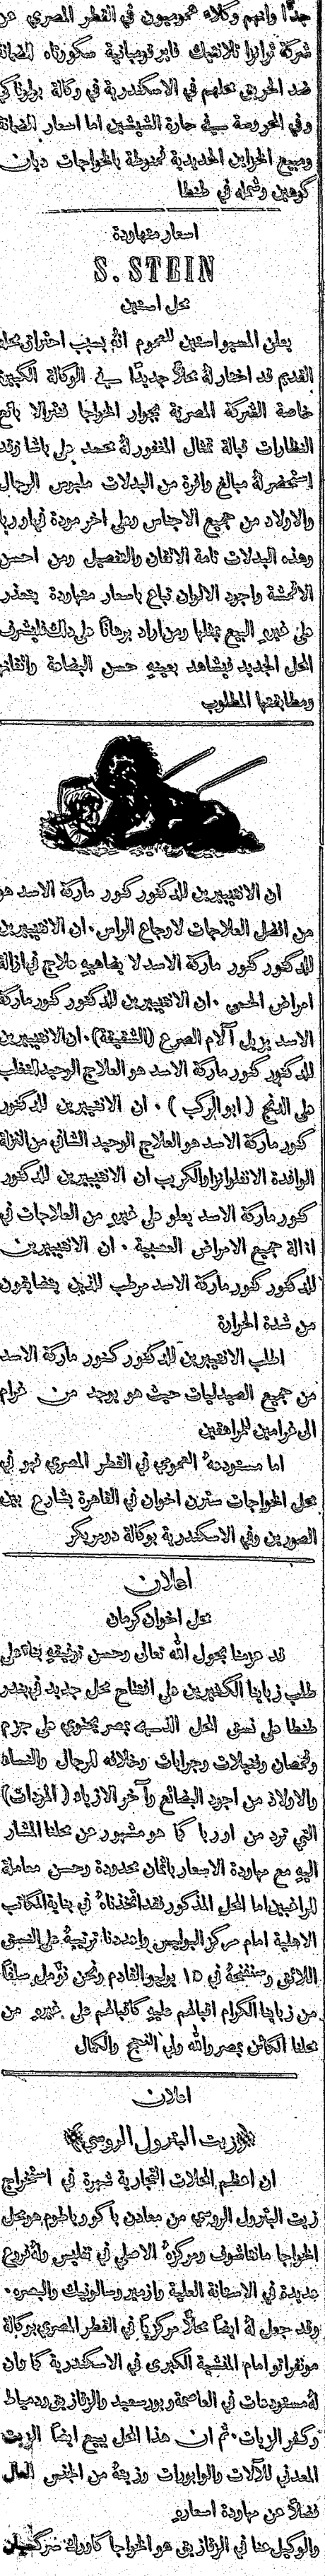 جدًّا وانهم وكلاء عموميون في القطر المصري عن
شركة ترازا تلانتيك فاير قومبانية سكورتاه الضمانة
ضد الحريق محلهم في الاسكندرية في وكالة
وفي المحروسة في حارة الشيشيني اما اسعار الضمانة
ومبيع الخزاين الحديدية فمنوطة بالخواجات ديان
كوهين وشمله في طنطا
اسعار متهاودة
S. STEIN
محل استين
يعلن المسيو استين للعموم انه بسبب احتراق محله
القديم قد اختار له محلاً جديدًا في الوكالة الكبيرة
خاصة الشركة المصرية بجوار الخواجا بائع
النظارات قبالة تمثال المغفور له محمد علي باشا وقد
استحضر له مبالغ وافرة من البدلات ملبوس الرجال
والاولاد من جميع الاجناس وعلى اخر مودة في اوربا
وهذه البدلات تامة الاتقان والتفصيل ومن احسن
الاقمشة واجود الالوان تباع باسعار متهاودة يتعذر
على غيره البيع بمثلها ومن اراد برهانًا على ذلك فليشرف
المحل الجديد فيشاهد بعينه حسن البضاعة واتقانها
ومطابقتها المطلوب
ان الانتيبيرين للدكتور كنور ماركة الاسد هو
من افضل العلاجات لاوجاع الراس . ان الانتيبيرين
للدكتور كنور ماركة الاسد لا يضاهيه علاج في ازالة
امراض الحمى . ان الانتيبيرين للدكتور كنور ماركة
الاسد يزيل آلام الصرع (الشقيقة) . ان الانتيبيرين
للدكتور كنور ماركة الاسد هو العلاج الوحيد للتغلب
على الدنج ( ابو الركب ) . ان الانتيبيرين للدكتور
كنور ماركة الاسد هو العلاج الوحيد الشافي من النزلة
الوافدة الانفلوانزا والكريب ان الانتيبيرين للدكتور
كنور ماركة الاسد يعلو على غيره من العلاجات في
ازالة جميع الامراض العصبية . ان الانتيبيرين
للدكتور كنور ماركة الاسد مرطب للذين يتضايقون
من شدة الحرارة
اطلب الانتيبيرين للدكتور كنور ماركة الاسد
من جميع الصيدليات حيث هو يوجد من غرام
الى غرامين للمراهقين
اما مستودعه العمومي في القطر المصري فهو في
محل الخواجات سترن اخوان في القاهرة بشارع بين
الصورين وفي الاسكندرية بوكالة درمريكر
اعلان
محل اخوان كرمان
قد عزمنا بحول الله تعالى وحسن توفيقه بناء على
طلب زبايننا الكثيرين على افتتاح محل جديد في بندر
طنطا على نسق المحل الذي بمصر يحتوي على جزم
وقمصان وفنيلات وجرابات وخلافه للرجال والنساء
والاولاد من اجود البضائع وآخر الازياء ( المودات )
التي ترد من اوربا كما هو مشهور عن محلنا المشار
اليه مع مهاودة الاسعار باثمان محدودة وحسن معاملة
للراغبين اما المحل المذكور فقد اتخذناه في بناية المكاتب
الاهلية امام مركز البوليس واعددنا ترتيبه على النسق
اللائق وسنفتحه في ١٥ يوليو القادم ونحن نؤمل سلفًا
من زبايننا الكرام اقبالهم عليه كاقبالهم على غيره من
محلنا الكائن بمصر والله ولي النجح والكمال
اعلان
﴿زيت البترول الروسي﴾
ان اعظم المحلات التجارية شهرة في استخراج
زيت البترول الروسي من معادن باكو وباطوم هو محل
الخواجا مانتاشوف ومركزه الاصلي في تفليس وله فروع
عديدة في الاستانة العلية وازمير وسالونيك والبصره .
وقد جعل له ايضًا محلاً مركزيًا في القطر المصري بوكالة
مونفراتو امام المنشية الكبرى في الاسكندرية كما وان
له مستودعات في العاصمة وبورسعيد والزقازيق ودمياط
وكفر الزيات . ثم ان هذا المحل يبيع ايضًا الزيت
المعدني للآلات والوابورات وزيته من الجنس العال
فضلاً عن مهاودة اسعاره
والوكيل عنا في الزقازيق هو الخواجا